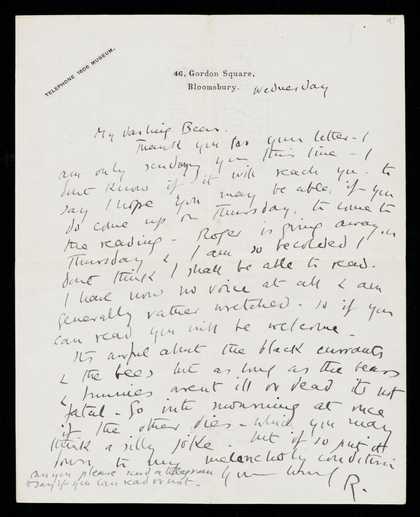 TELEPHONE 1606 MUSEUM.
46, Gordon Square,
Bloomsbury. Wednesday
My darling Bear.
Thank you for your letter - I
am only sending you this line - I
dont know if it will reach you - to
say I hope you may be able, if you
do come up on Thursday, to come to
the reading - Roger is going away on
Thursday & I am so becolded I
dont think I shall be able to read.
I have now no voice at all & am
generally rather wretched - so if you
can read you will be welcome.
Its awful about the black currants
& the bees but as long as the bears
& bunnies arent ill or dead its not
fatal - Go into mourning at once
if the other dies - which you may
think a silly joke. but if so put it
down to my melancholy condition
anyway please send a telegram
to say if you can read or not.
R.